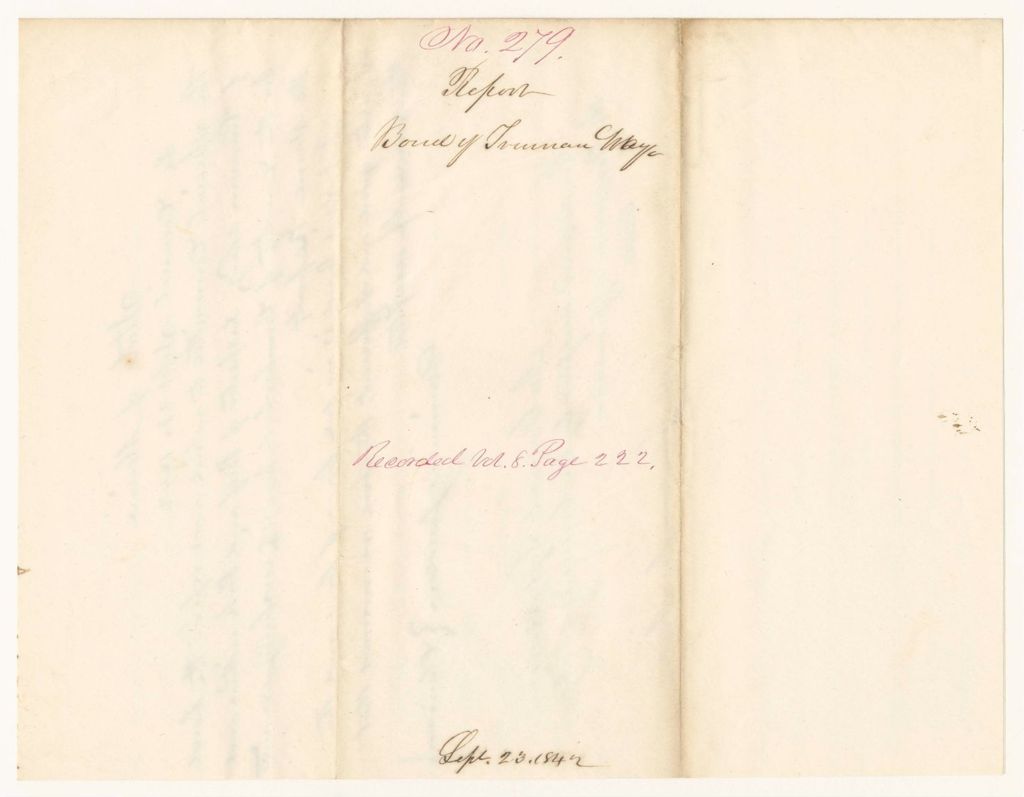 No. 279.
Report
Bond of Truman Way
Recorded Vol. 8. Page 222.
Sept. 23. 1842